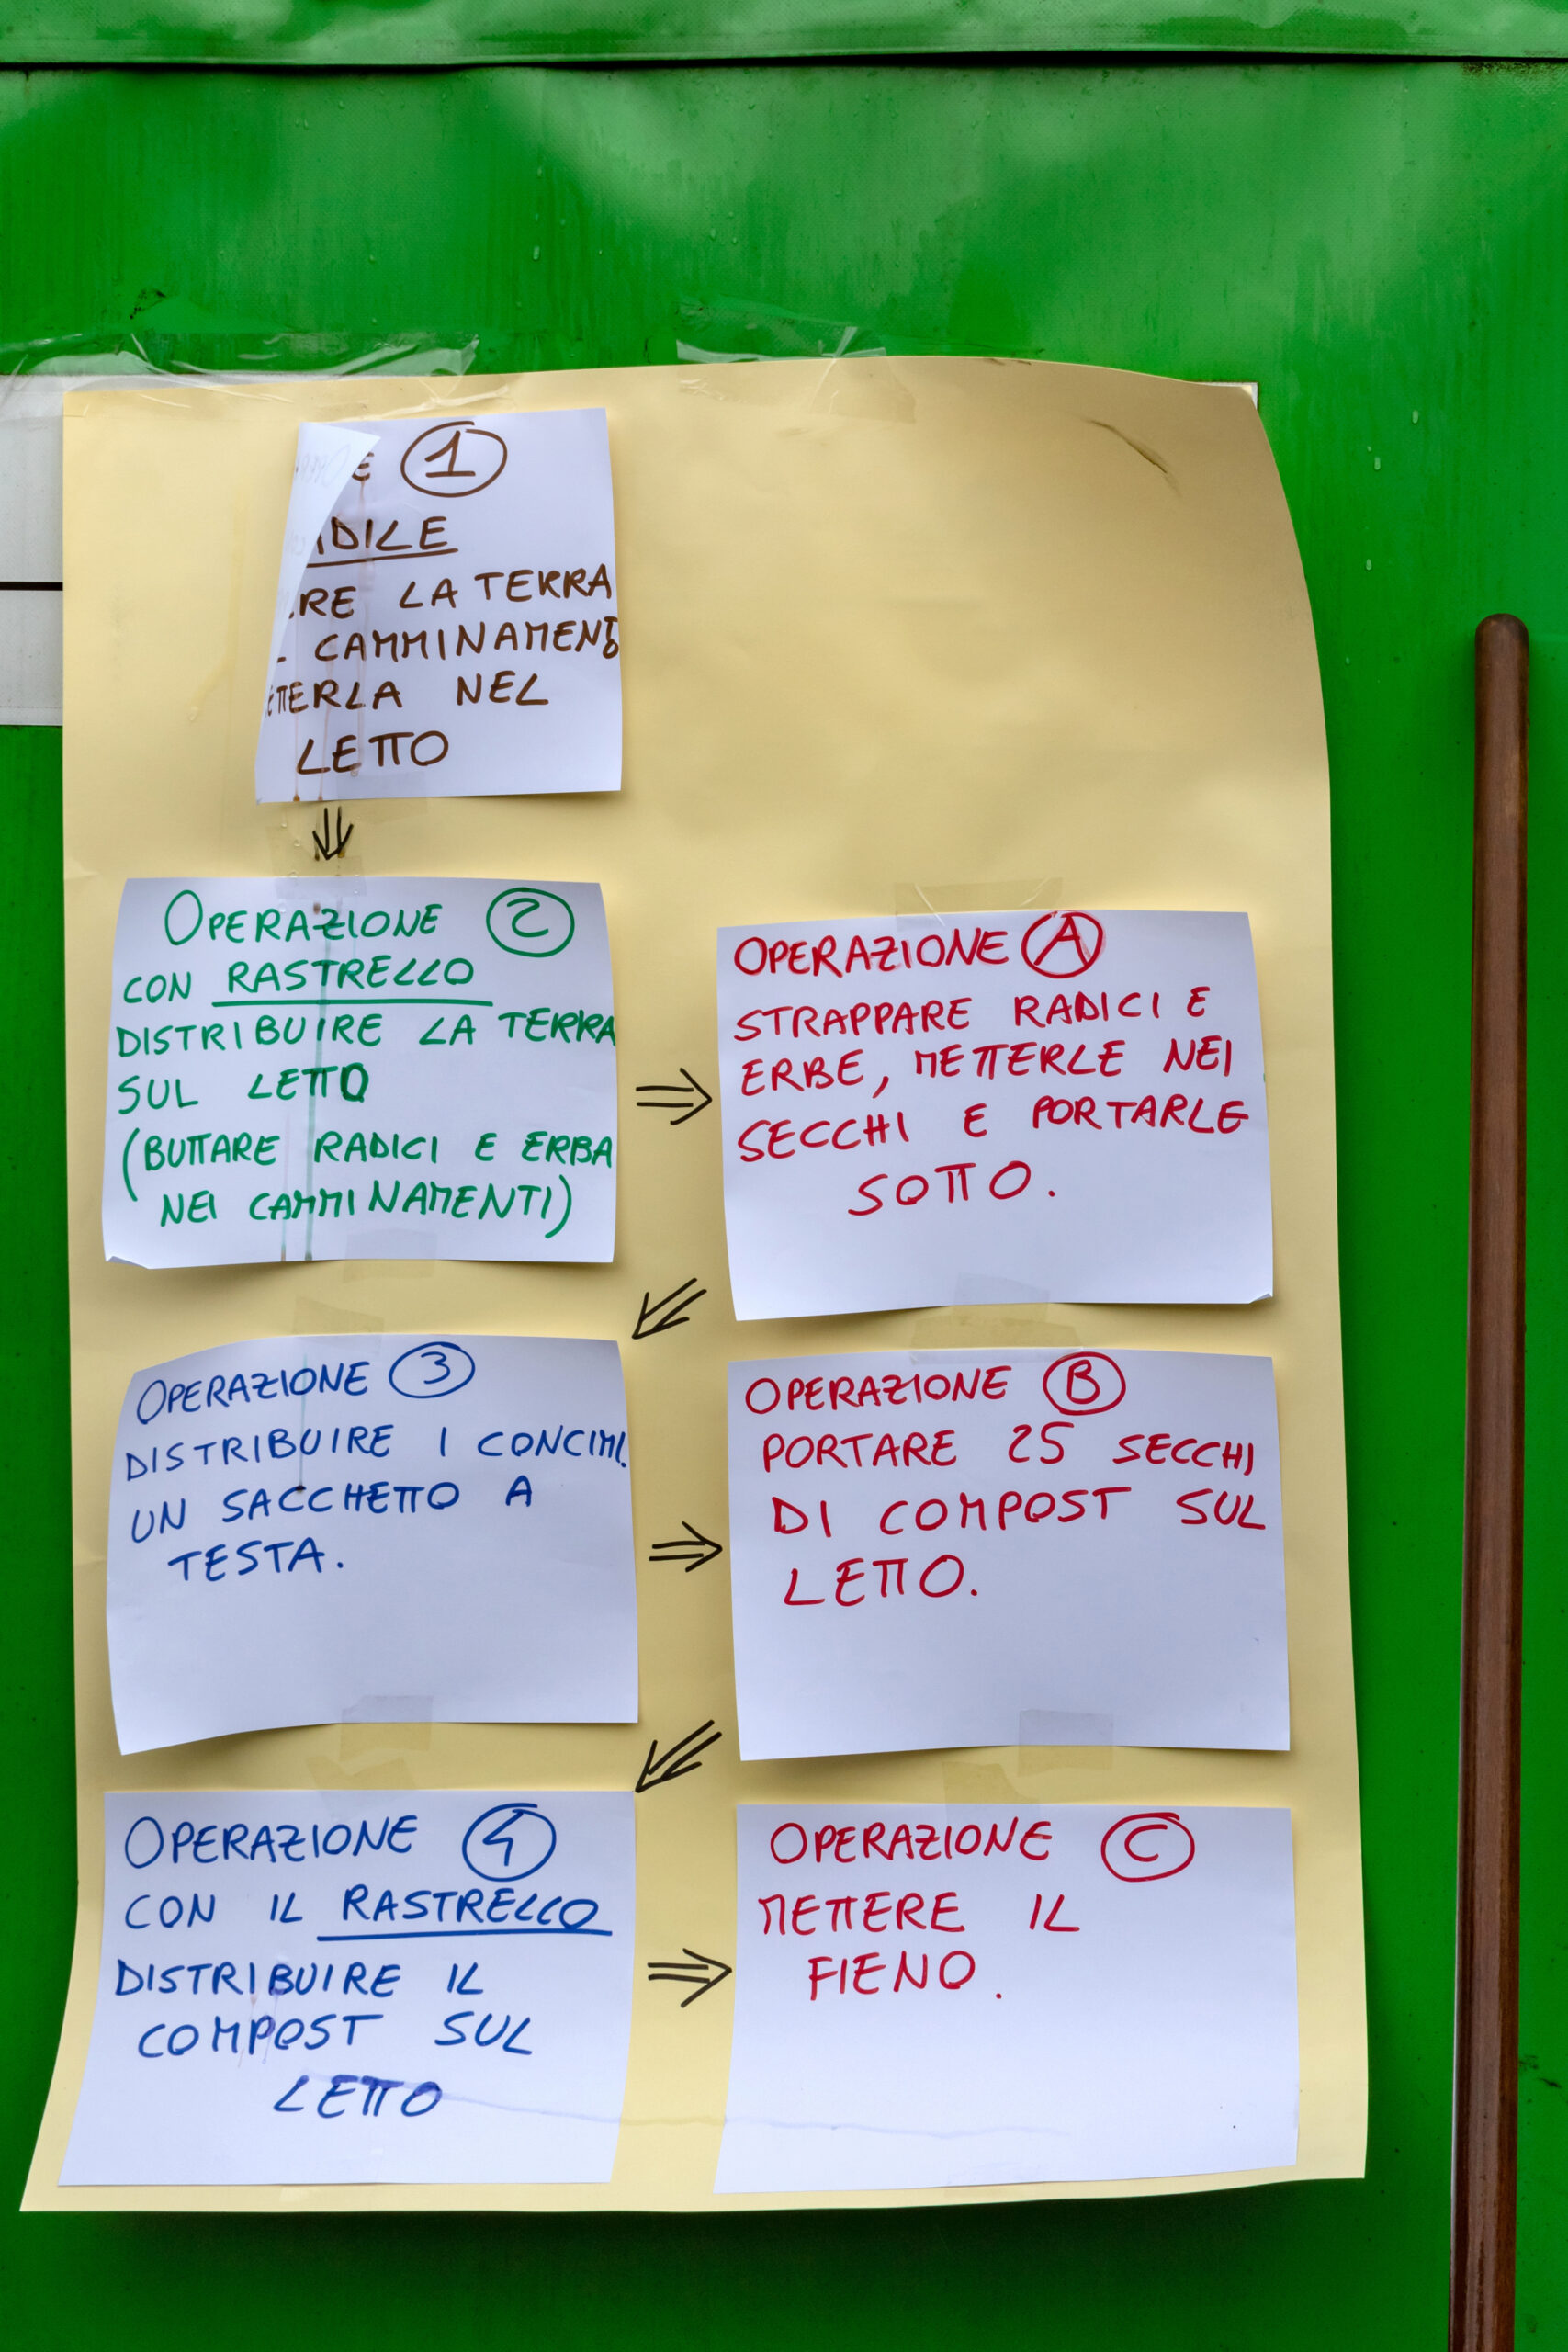 1
LA TERRA
CAMMINAMENTO
NEL
LETTO
OPERAZIONE 2
CON RASTRELLO
DISTRIBUIRE LA TERRA
SUL LETTO
(BUTTARE RADICI E ERBA
NEI CAMMINAMENTI)
OPERAZIONE A
STRAPPARE RADICI E
ERBE, METTERLE NEI
SECCHI E PORTARLE
SOTTO.
OPERAZIONE 3
DISTRIBUIRE I CONCIMI.
UN SACCHETTO A
TESTA.
OPERAZIONE B
PORTARE 25 SECCHI
DI COMPOST SUL
LETTO.
OPERAZIONE 4
CON IL RASTRELLO
DISTRIBUIRE IL
COMPOST SUL
LETTO
OPERAZIONE C
METTERE IL
FIENO.